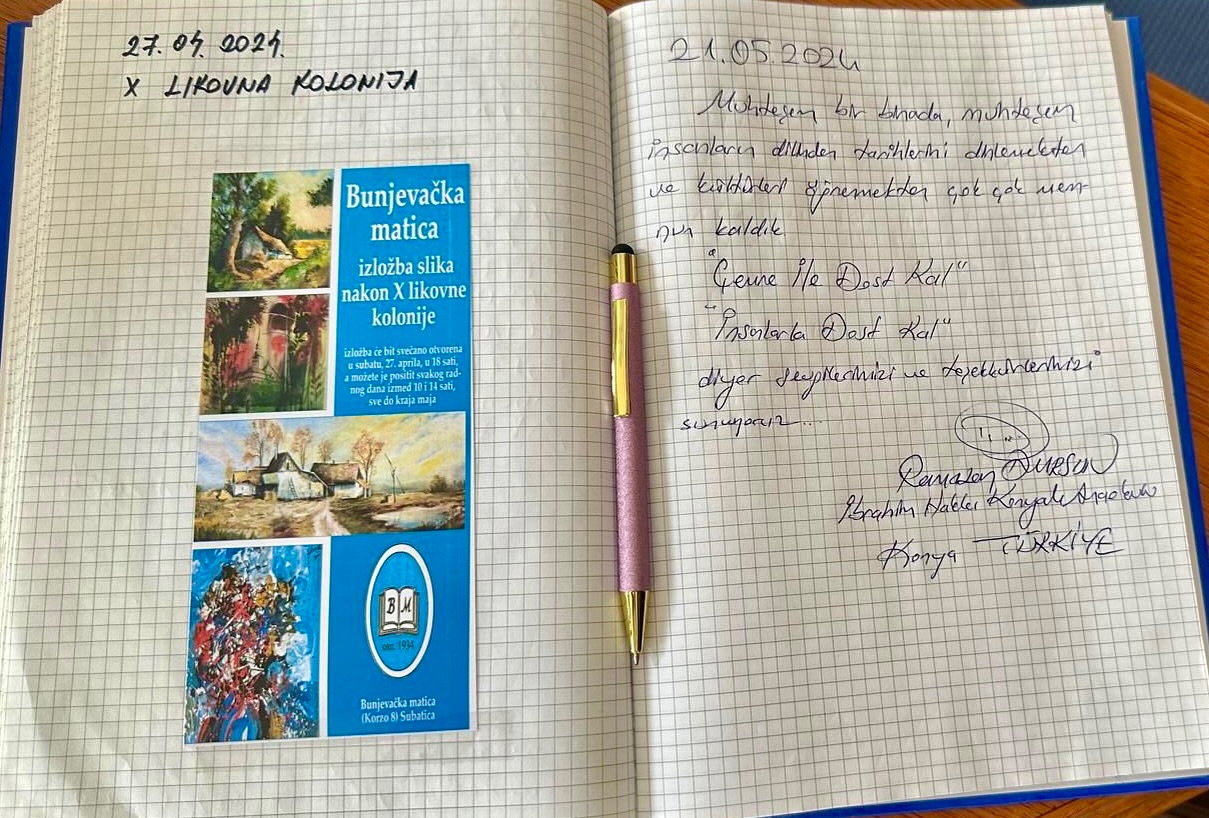 27.04.2024.
X LIKOVNA KOLONIJA
Bunjevačka
matica
izložba slika
nakon X likovne
kolonije
izložba će bit svečano otvorena
u subatu, 27. aprila, u 18 sati,
a možete je positit svakog rad-
nog dana izmed 10 i 14 sati,
sve do kraja maja
B M
osn. 1934
Bunjevačka matica
(Korzo 8) Subatica
21.05.2024
Muhteşem bir binada, muhteşem
insanların dilinden tarihlerini dinlemekten
ve kültürleri öğrenmekten çok çok mem-
nun kaldık
"Çevre İle Dost Kal"
"İnsanlarla Dost Kal"
diyer saygılarımızı ve teşekkürlerimizi
sunuyoruz...
Ramazan DURSUN
İbrahim Hakkı Konyalı
Konya TÜRKİYE